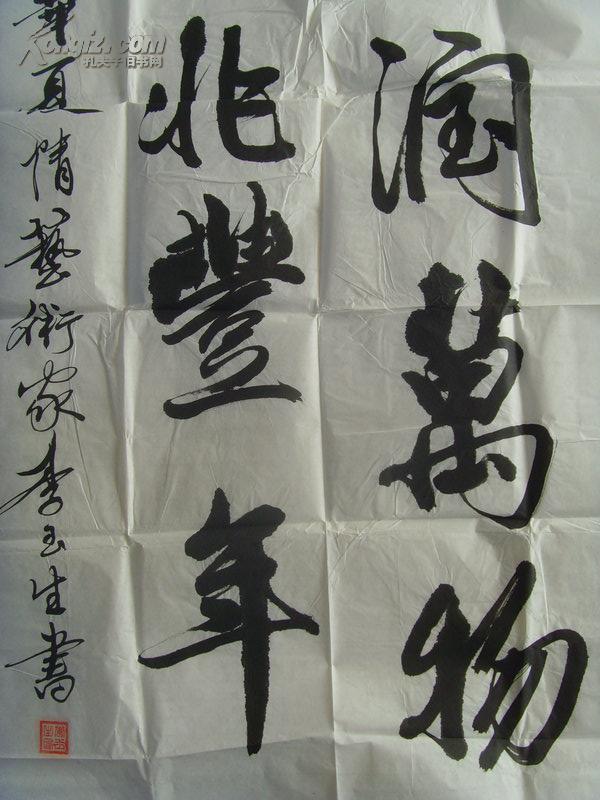 润萬物
兆豐年
華夏情藝術家李玉生書
Kongfz.com
孔夫子旧书网